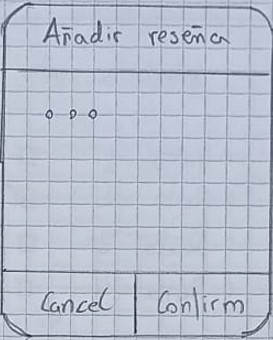 Añadir reseña
ooo
Cancel Confirm